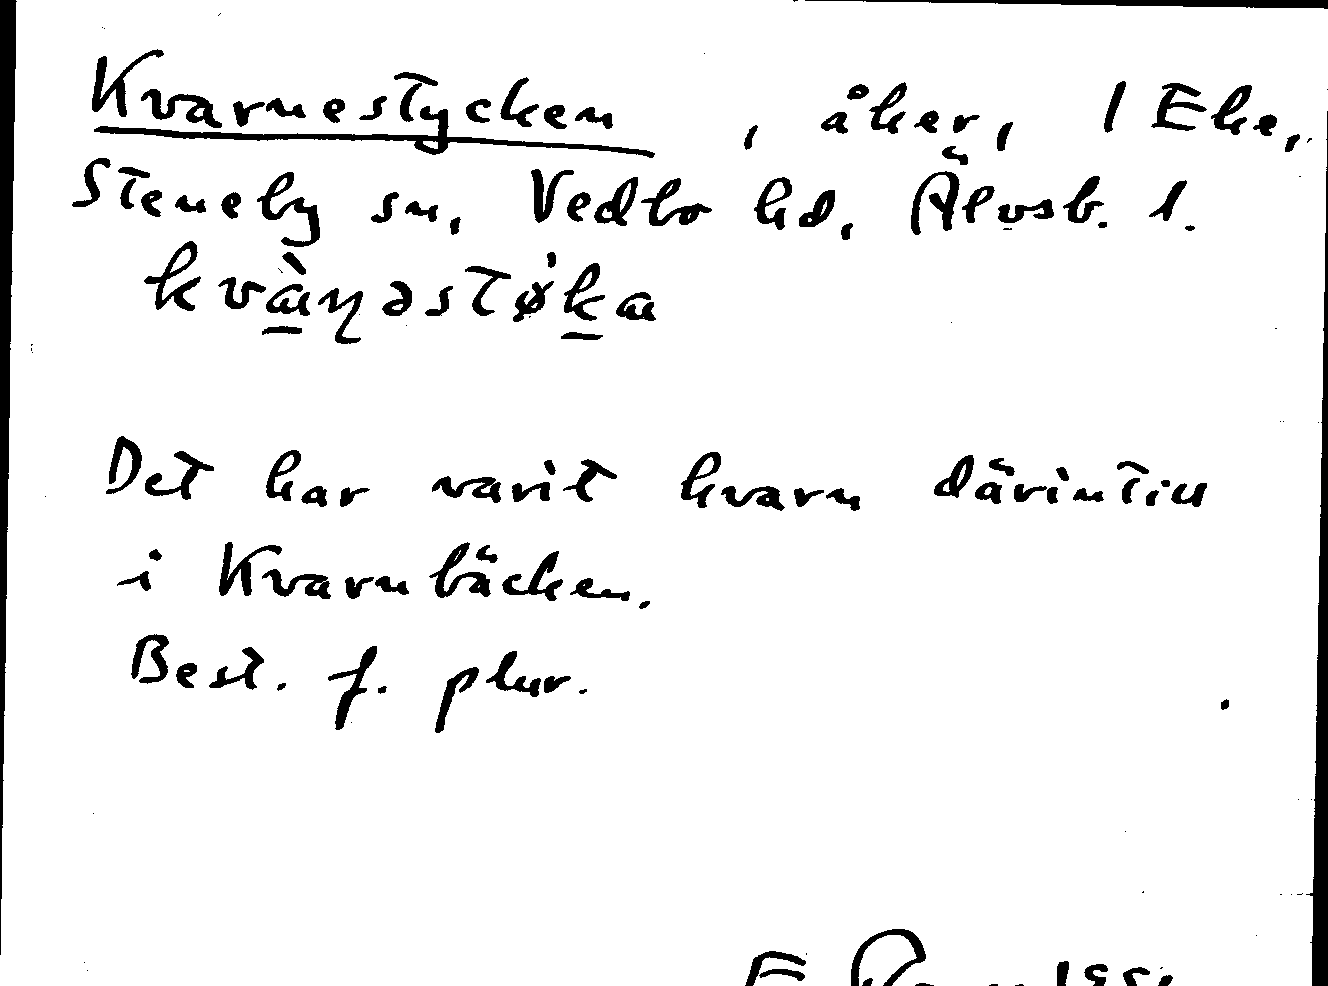 Kvarnestycken, åker, 1 Eke,
Steneby sn, Vedbo hd, Älvsb. l.
kvàɳəstø̀ka
Det har varit kvarn därintill
i Kvarnbäcken.
Best. f. plur.